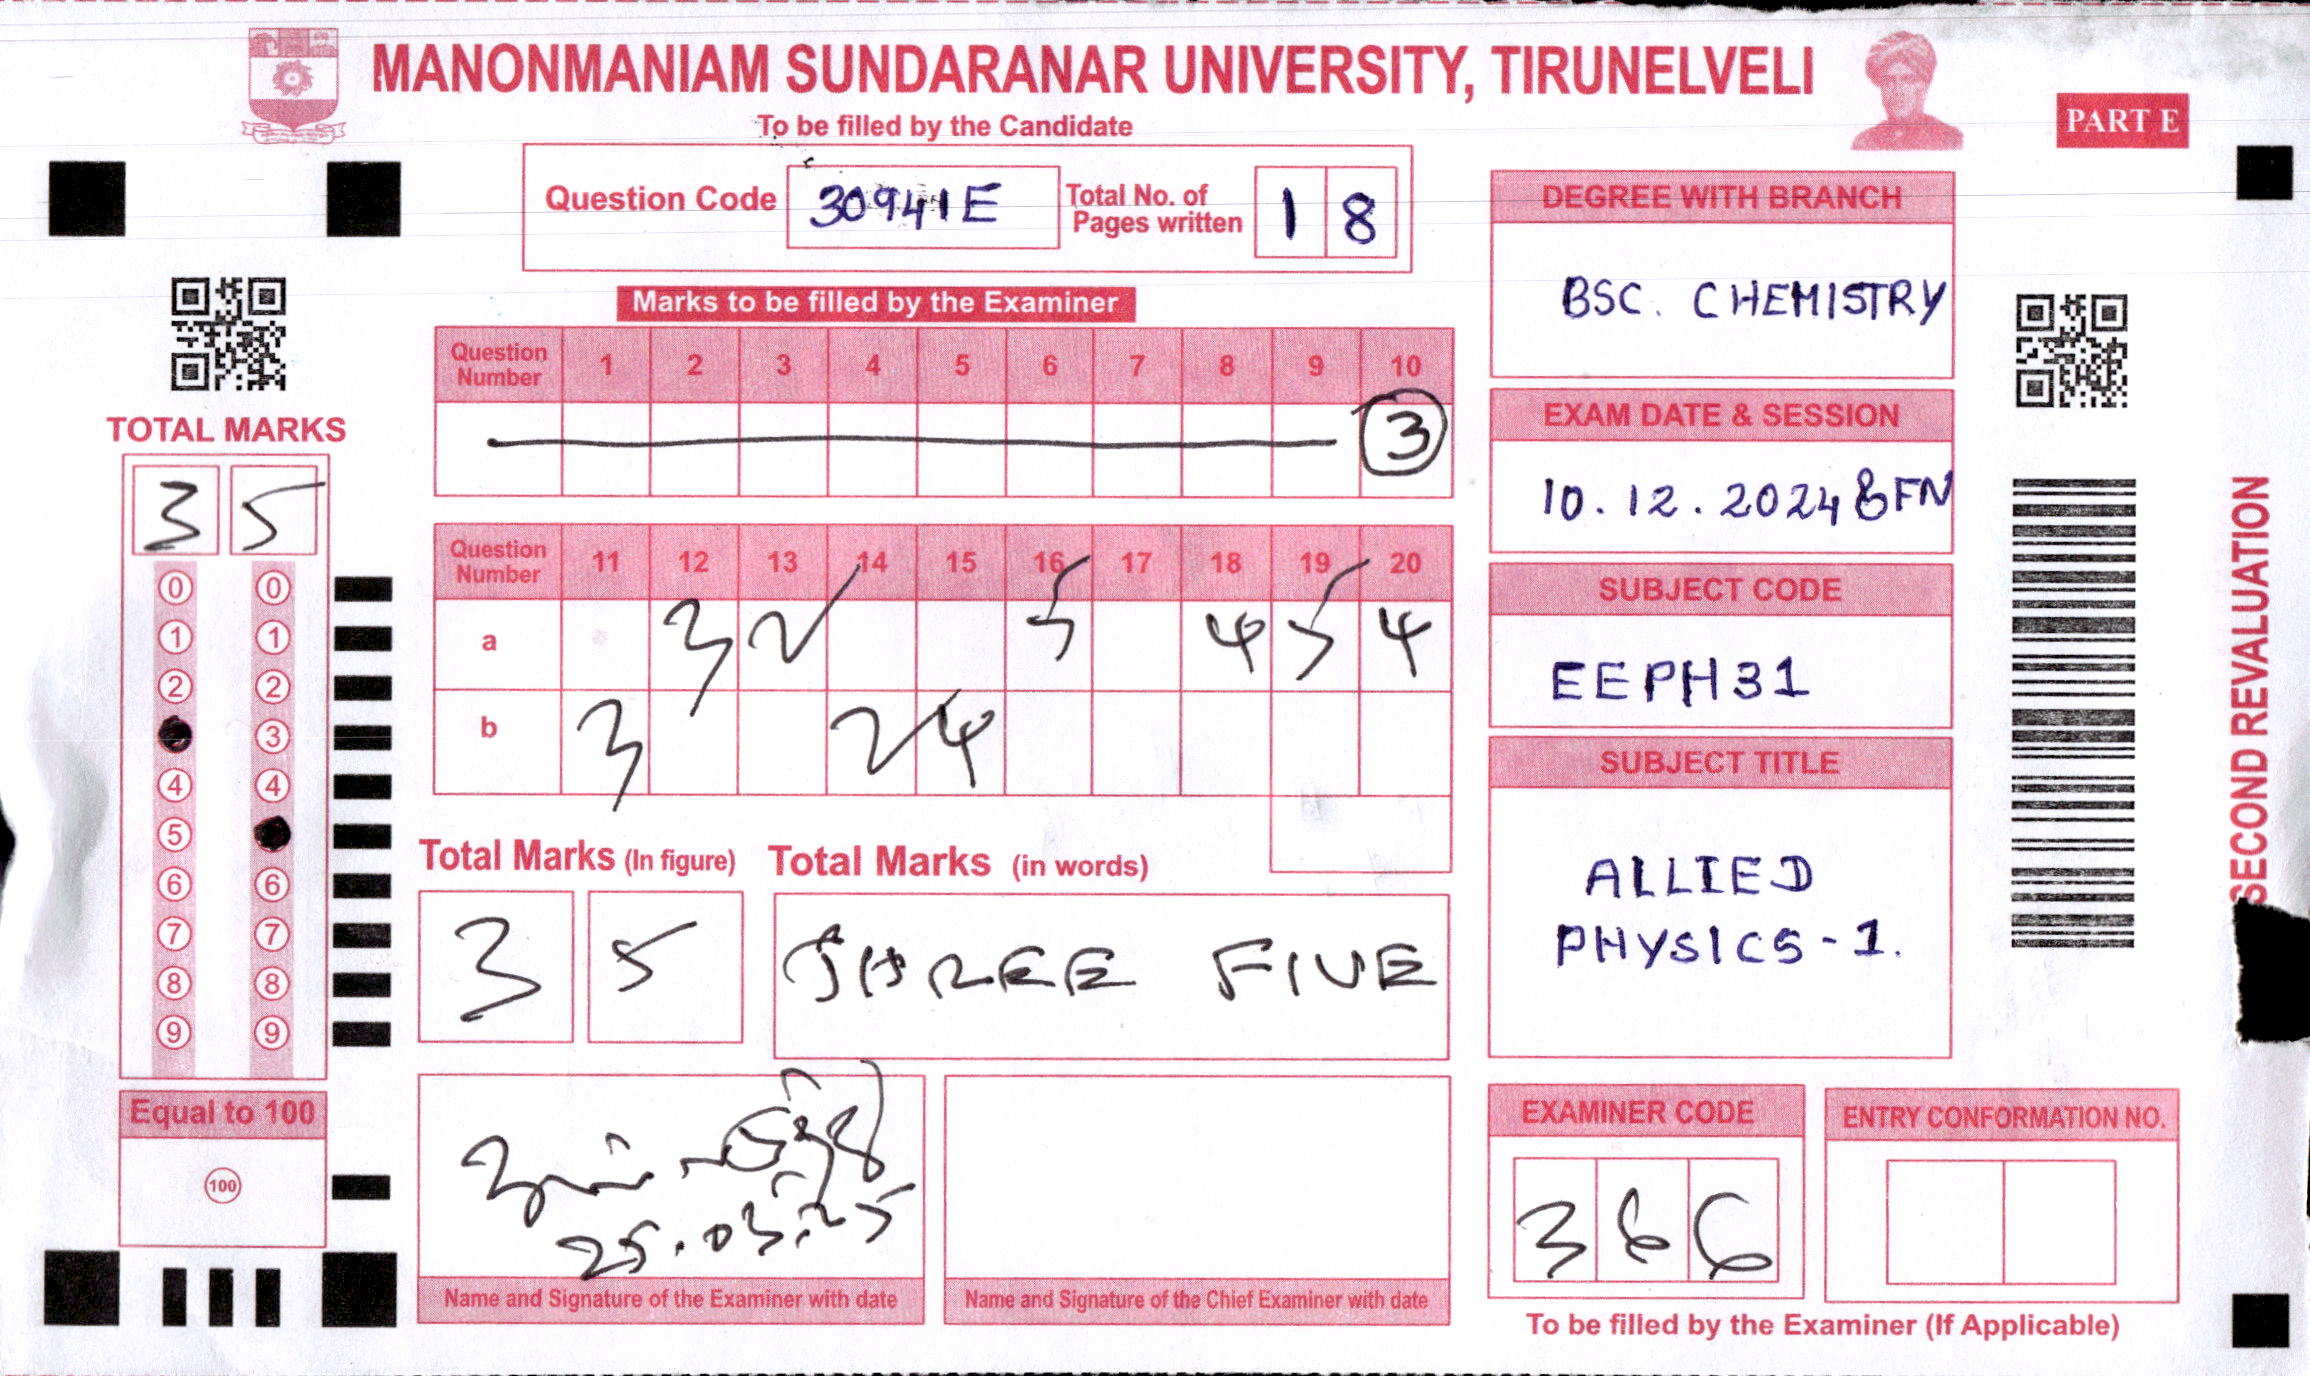 MANONMANIAM SUNDARANAR UNIVERSITY, TIRUNELVELI
To be filled by the Candidate
PART E
Question Code 30941E Total No. of Pages written 1 8
Marks to be filled by the Examiner
Question Number 1 2 3 4 5 6 7 8 9 10
3
Question Number 11 12 13 14 15 16 17 18 19 20
a 3 2 5 4 5 4
b 3 2 4
Total Marks (In figure) Total Marks (in words)
3 5 THREE FIVE
25.03.25
Name and Signature of the Examiner with date
Name and Signature of the Chief Examiner with date
TOTAL MARKS
3 5
0 0
1 1
2 2
3
4 4
5
6 6
7 7
8 8
9 9
Equal to 100
100
DEGREE WITH BRANCH
BSC. CHEMISTRY
EXAM DATE & SESSION
10.12.2024 & FN
SUBJECT CODE
EEPH31
SUBJECT TITLE
ALLIED
PHYSICS-1.
EXAMINER CODE
3 6 6
ENTRY CONFORMATION NO.
To be filled by the Examiner (If Applicable)
SECOND REVALUATION